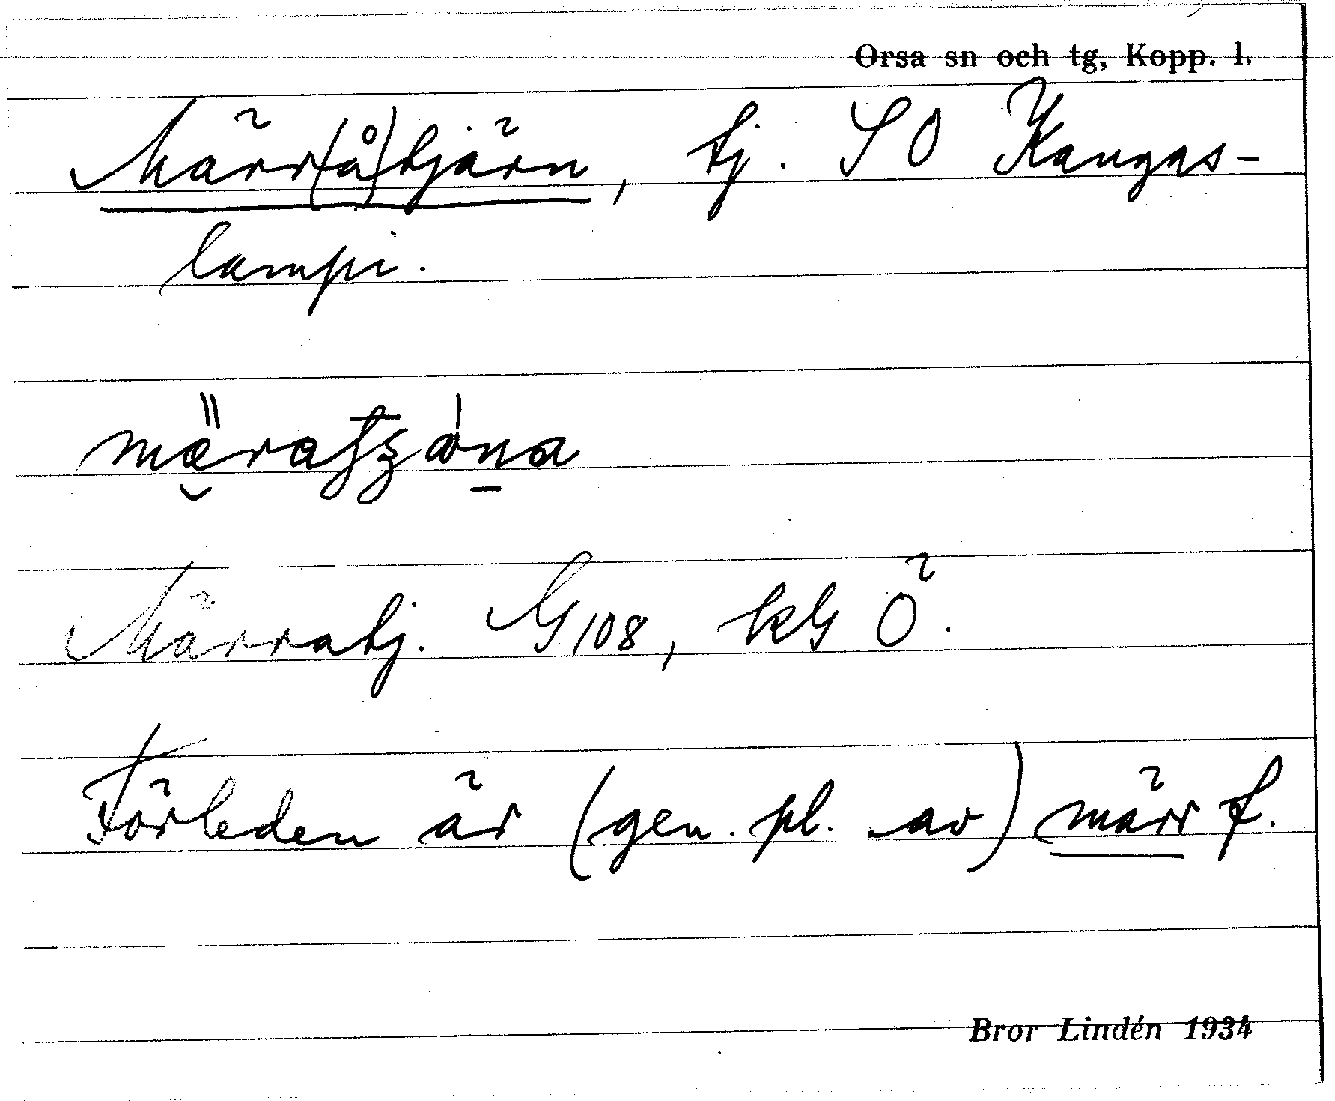 Orsa sn och tg, Kopp. l.
Märr(å)tjärn, tj. SO Kangas-
lampi.
Märratj. G108, kG Ö.
Förleden är (gen. pl. av) märr f.
Bror Lindén 1934